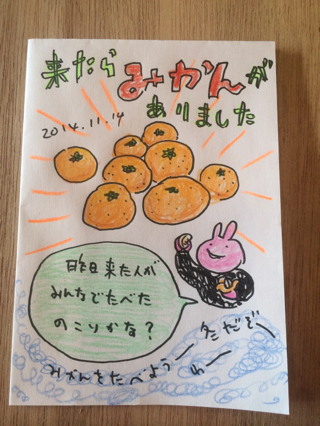 来たらみかんが
ありました
2014.11.14
昨日来た人が
みんなでたべた
のこりかな?
冬だぞー
みかんをたべようー
わー